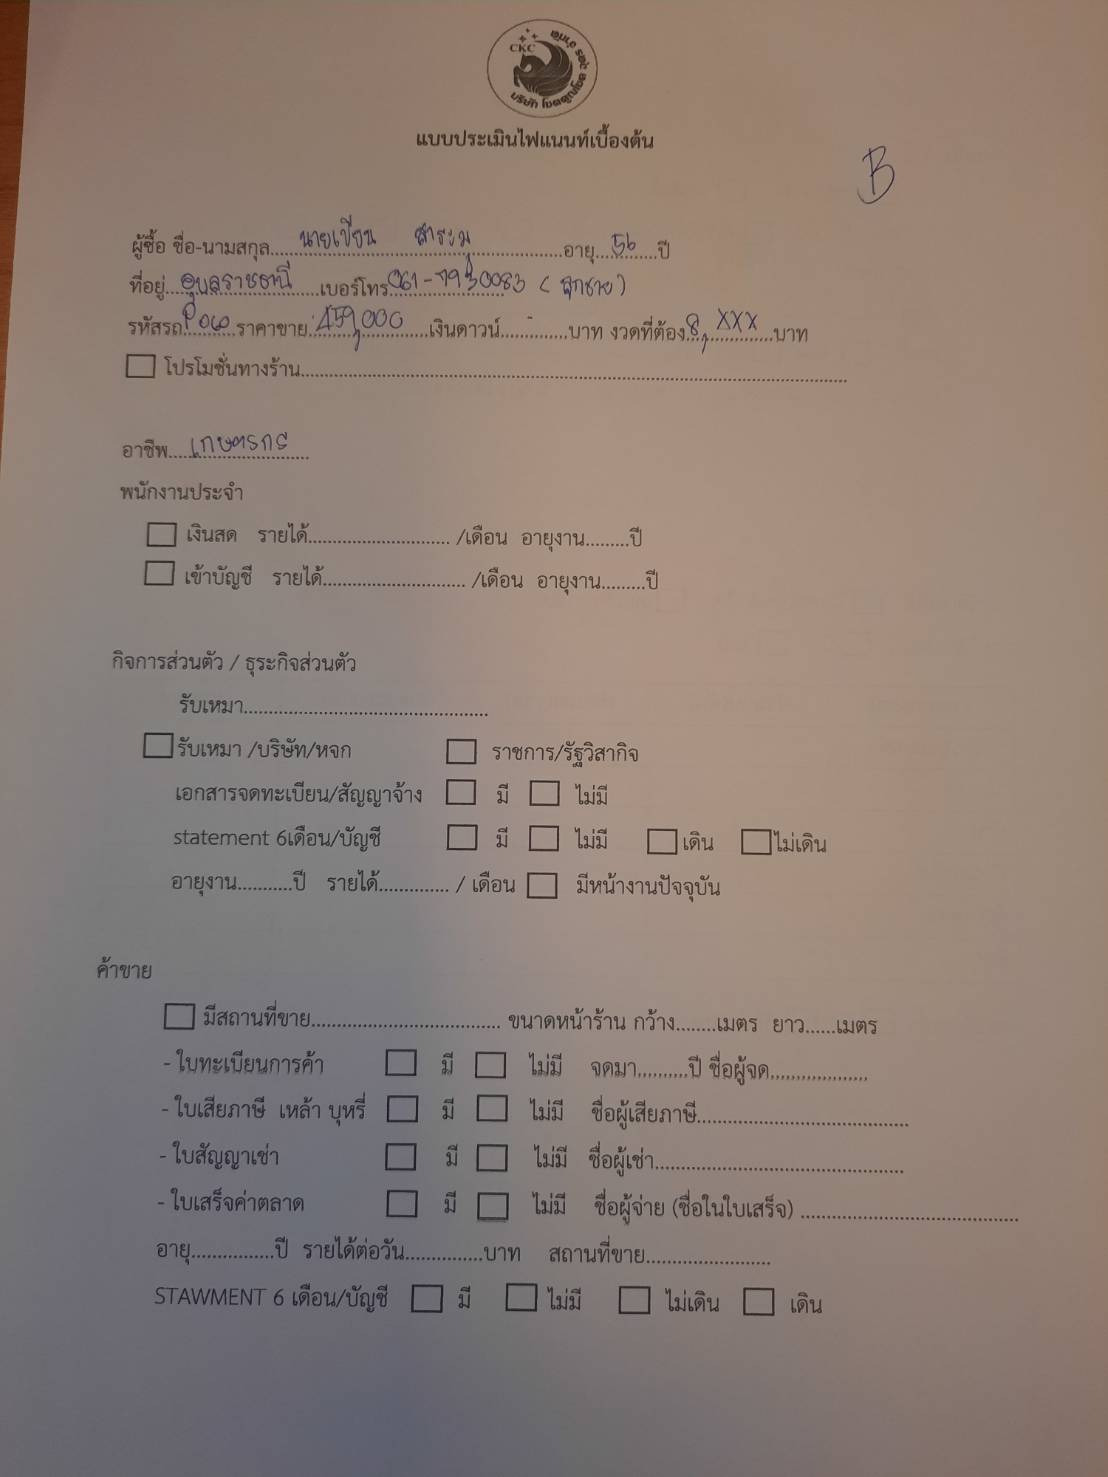 CKC
แบบประเมินไฟแนนท์เบื้องต้น
B
ผู้ซื้อ ชื่อ-นามสกุล....นาย.............อายุ...56...ปี
ที่อยู่...อุบลราชธานี...เบอร์โทร 061-7930083 (ลูกชาย)
รหัสรถ.............ราคาขาย...459,000...เงินดาวน์....-....บาท งวดที่ต้อง..8,XXX...บาท
☐ โปรโมชั่นทางร้าน..........................................
อาชีพ....เกษตรกร
พนักงานประจำ
☐ เงินสด รายได้............................ /เดือน อายุงาน.........ปี
☐ เข้าบัญชี รายได้............................ /เดือน อายุงาน.........ปี
กิจการส่วนตัว / ธุระกิจส่วนตัว
รับเหมา................................................
☐ รับเหมา /บริษัท/หจก ☐ ราชการ/รัฐวิสากิจ
เอกสารจดทะเบียน/สัญญาจ้าง ☐ มี ☐ ไม่มี
statement 6เดือน/บัญชี ☐ มี ☐ ไม่มี ☐ เดิน ☐ ไม่เดิน
อายุงาน...........ปี รายได้.............. / เดือน ☐ มีหน้างานปัจจุบัน
ค้าขาย
☐ มีสถานที่ขาย..................................... ขนาดหน้าร้าน กว้าง........เมตร ยาว......เมตร
- ใบทะเบียนการค้า ☐ มี ☐ ไม่มี จดมา..........ปี ชื่อผู้จด...................
- ใบเสียภาษี เหล้า บุหรี่ ☐ มี ☐ ไม่มี ชื่อผู้เสียภาษี..........................................
- ใบสัญญาเช่า ☐ มี ☐ ไม่มี ชื่อผู้เช่า.................................................
- ใบเสร็จค่าตลาด ☐ มี ☐ ไม่มี ชื่อผู้จ่าย (ชื่อในใบเสร็จ) ...........................................
อายุ................ปี รายได้ต่อวัน...............บาท สถานที่ขาย.........................
STAWMENT 6 เดือน/บัญชี ☐ มี ☐ ไม่มี ☐ ไม่เดิน ☐ เดิน